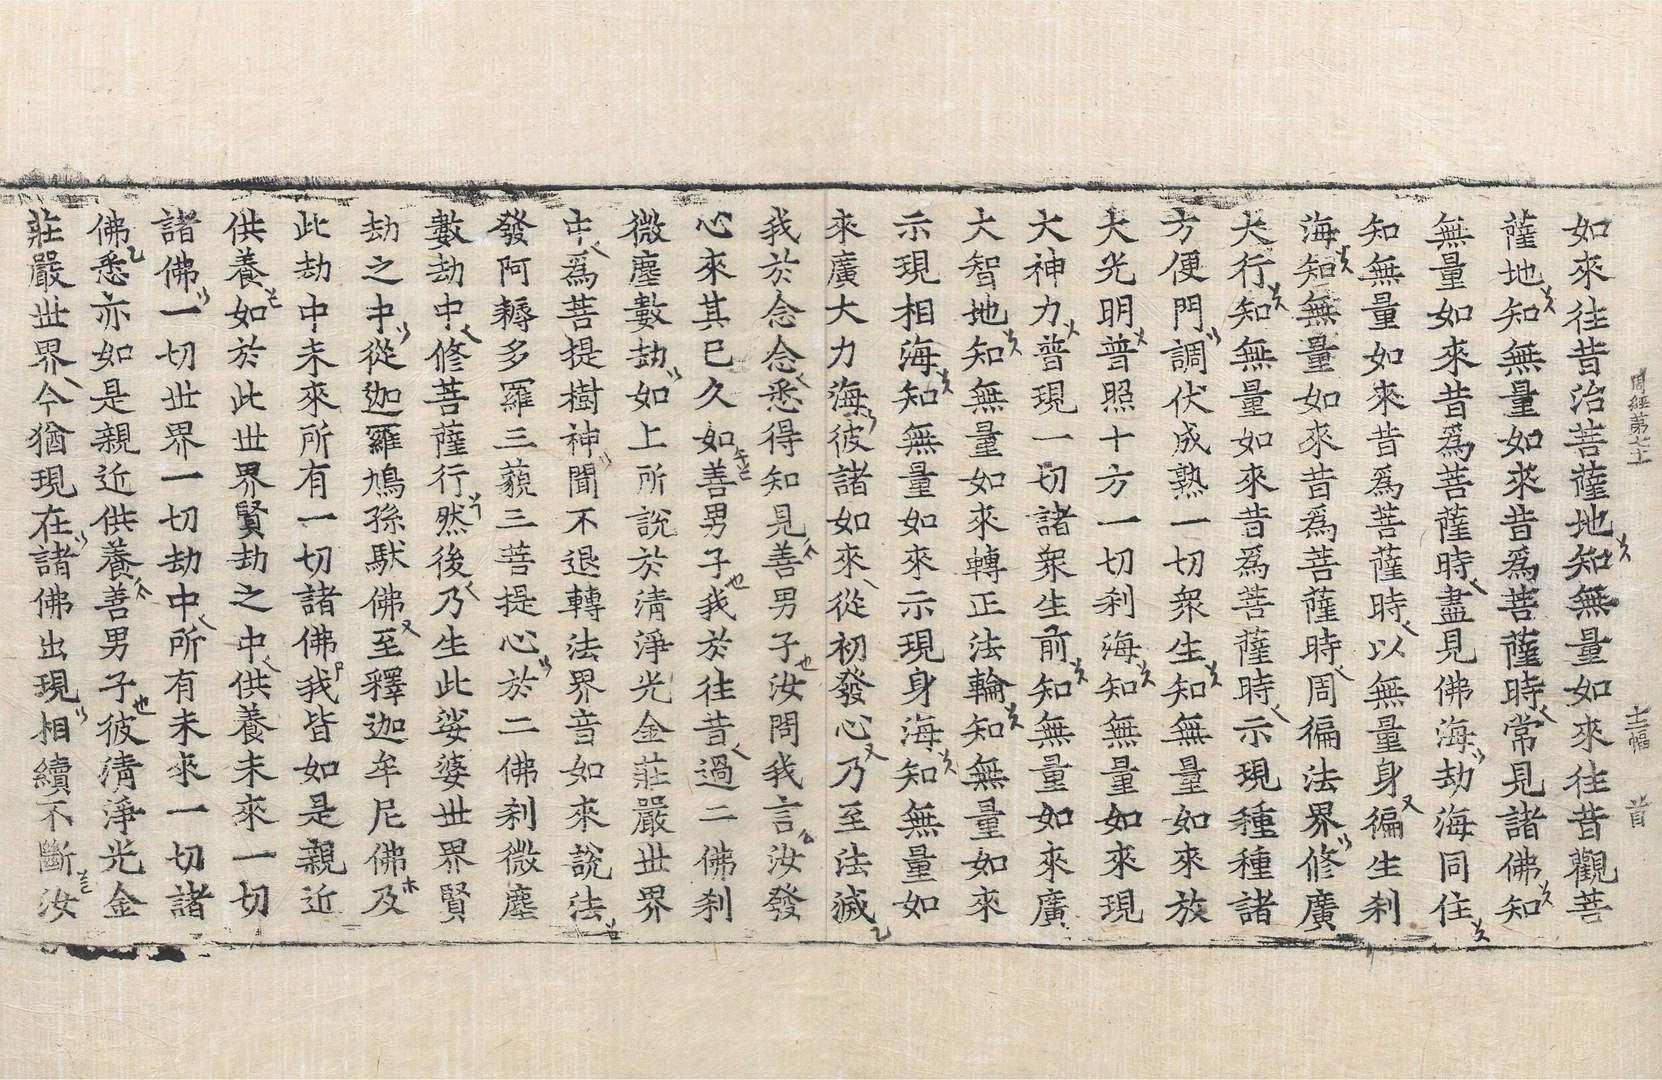 周經第七十一 十二幅 首
如來往昔治菩薩地知無量如來往昔觀菩
薩地知無量如來昔爲菩薩時常見諸佛知
無量如來昔爲菩薩時盡見佛海劫海同住
知無量如來昔爲菩薩時以無量身徧生刹
海知無量如來昔爲菩薩時周徧法界修廣
大行知無量如來昔爲菩薩時示現種種諸
方便門調伏成熟一切衆生知無量如來放
大光明普照十方一切刹海知無量如來現
大神力普現一切諸衆生前知無量如來廣
大智地知無量如來轉正法輪知無量如來
示現相海知無量如來示現身海知無量如
來廣大力海彼諸如來從初發心乃至法滅
我於念念悉得知見善男子汝問我言汝發
心來其已久如善男子我於往昔過二佛刹
微塵數劫如上所說於清淨光金莊嚴世界
中爲菩提樹神聞不退轉法界音如來說法
發阿耨多羅三藐三菩提心於二佛刹微塵
數劫中修菩薩行然後乃生此娑婆世界賢
劫之中從迦羅鳩孫馱佛至釋迦牟尼佛及
此劫中未來所有一切諸佛我皆如是親近
供養如於此世界賢劫之中供養未來一切
諸佛一切世界一切劫中所有未來一切諸
佛悉亦如是親近供養善男子彼清淨光金
莊嚴世界今猶現在諸佛出現相續不斷汝